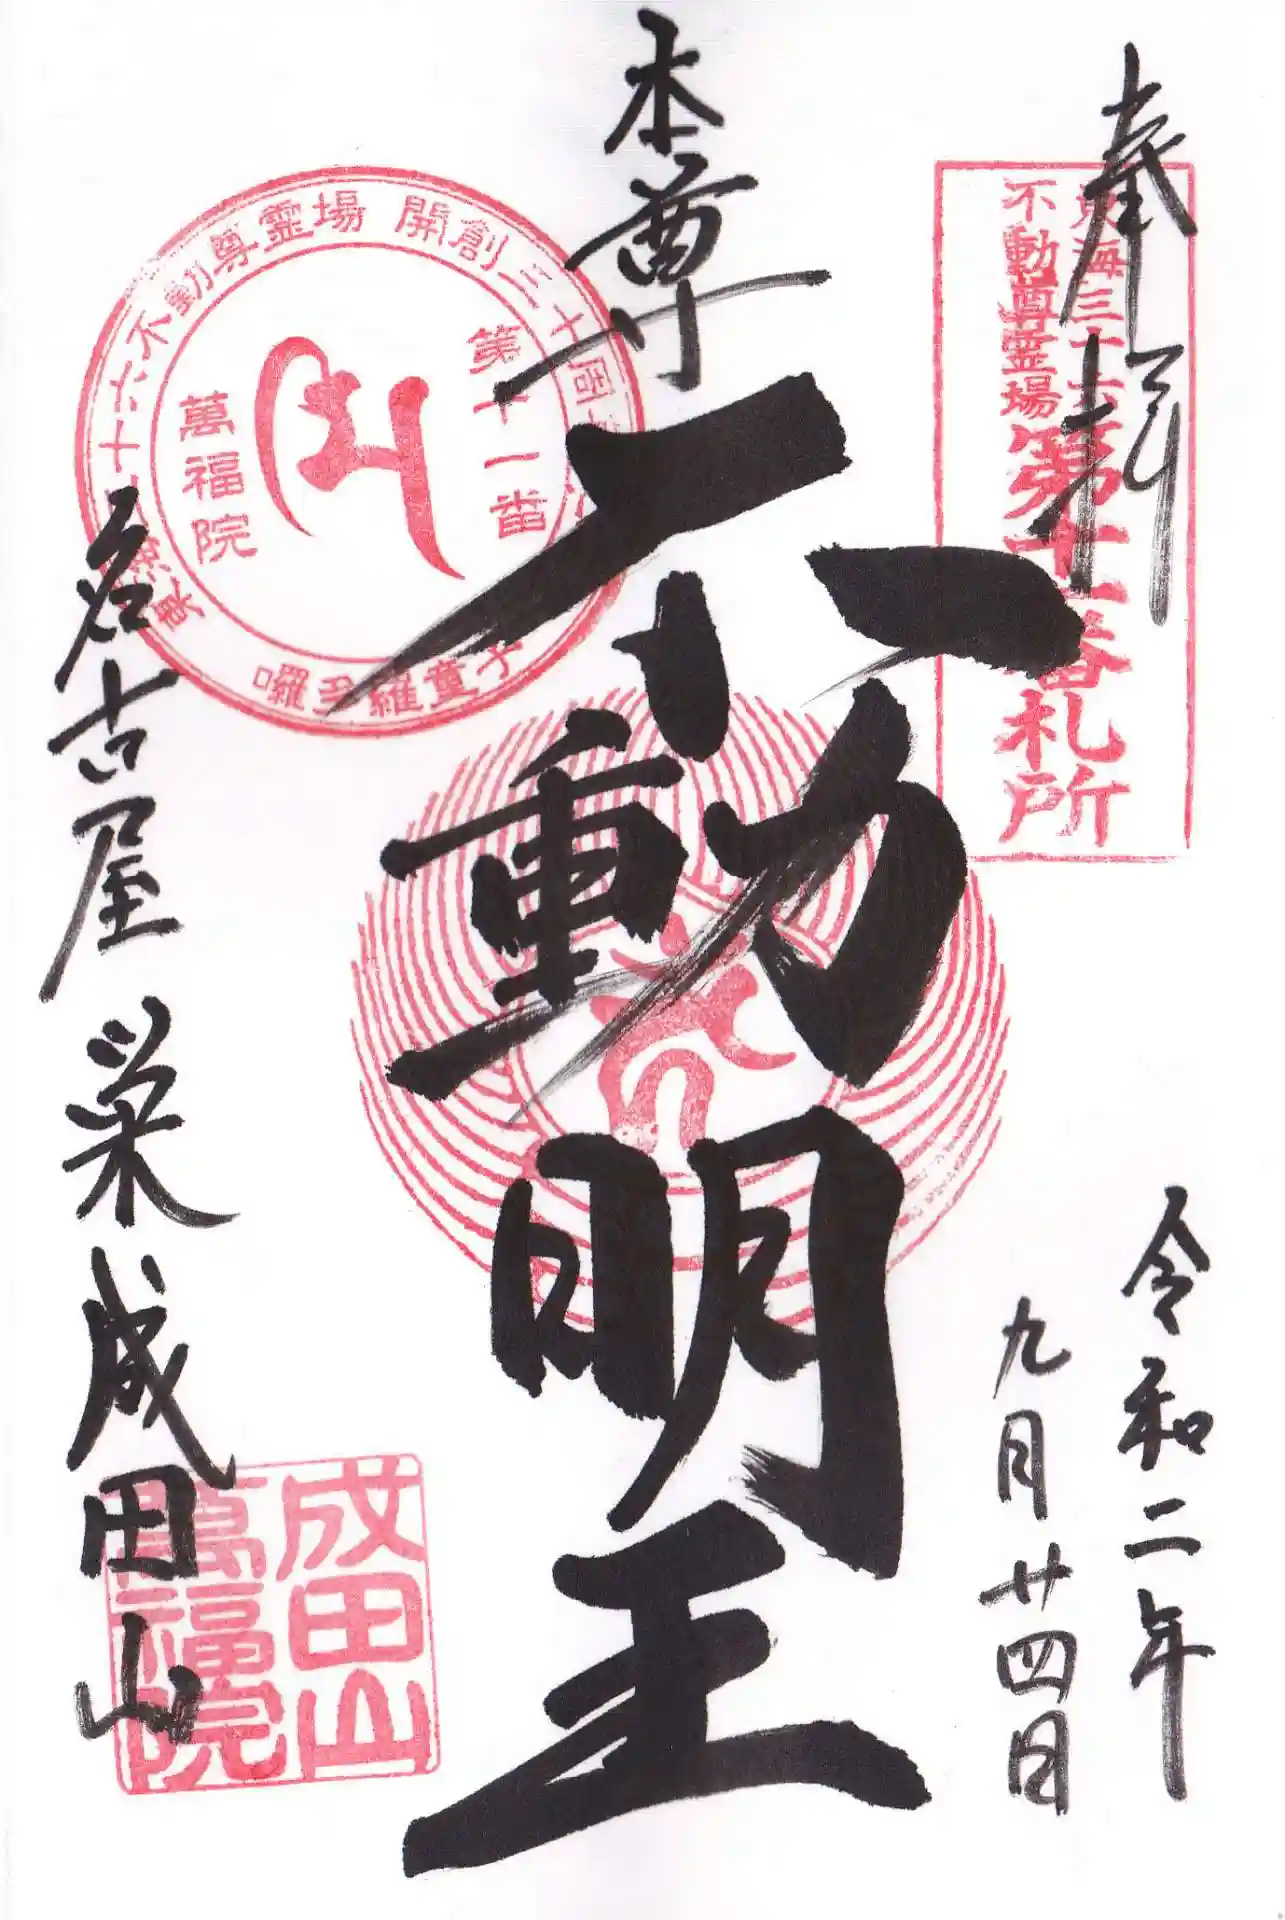 奉拝
東海三十六
不動尊霊場
第十一番札所
令和二年
九月廿四日
本尊
不動明王
開創三十周
東海三十六不動尊霊場
第十一番
萬福院
囉多羅童子
名古屋 栄 成田山
成田山
萬福院